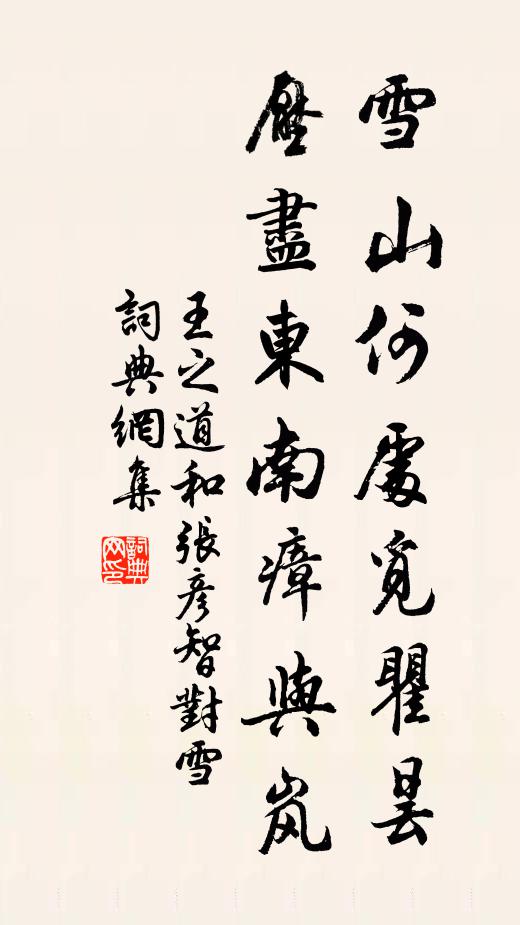 雪山何處覓瞿曇
壓盡東南瘴與岚
王之道和張彥智對雪
詞典網集
詞典網印